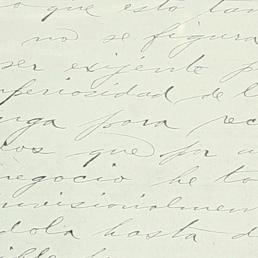 que esto tan
no se figura
ser exijente p
periosidad de l
nga para rec
os que pr a
negocio he to
ovisionalmen
dola hasta d